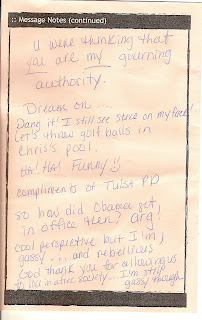 :: Message Notes (continued)
u were thinking that
you are my governing
authority.
Dream on ...
Dang it! I still see on my face!
Let's throw golf balls in
Chris's pool.
HA! HA! Funny!
compliments of Tulsa PD
so how did Obama get
in office then? arg!
cool perspective but I'm
gassy ... and rebellious
God thank you for allowing us
to live in a free society... I'm still
gassy though